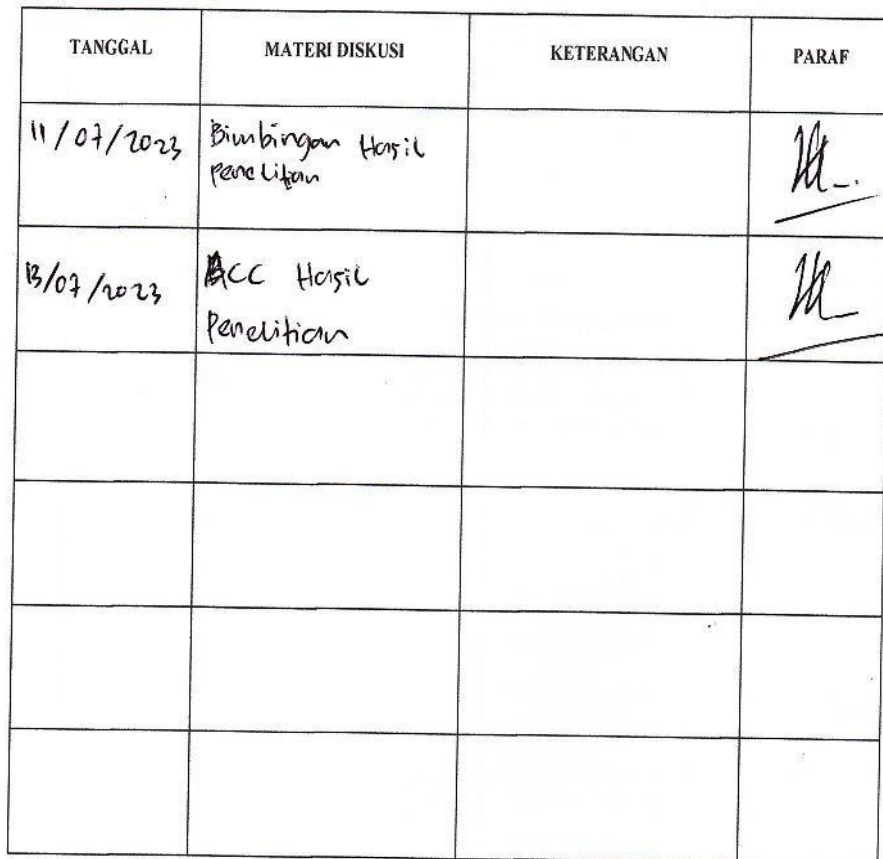 TANGGAL MATERI DISKUSI KETERANGAN PARAF
11/07/2023 Bimbingan Hasil
Penelitian
13/07/2023 ACC Hasil
Penelitian